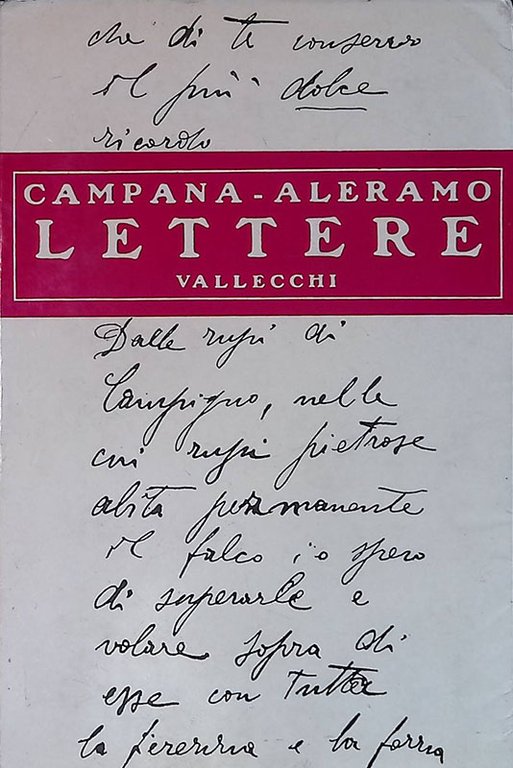 che di te conservo
il più dolce
ricordo
CAMPANA - ALERAMO
LETTERE
VALLECCHI
Dalle rupi di
Campigno, nelle
cui rupi pietrose
abita permanente
il falco io spero
di superarle e
volare sopra di
esse con tutta
la e la forza